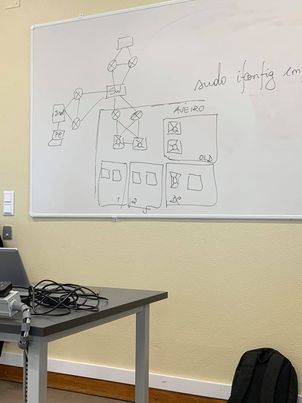 sudo ifconfig en
SW
AVEIRO
SW
PC
OLD
1
2
DC